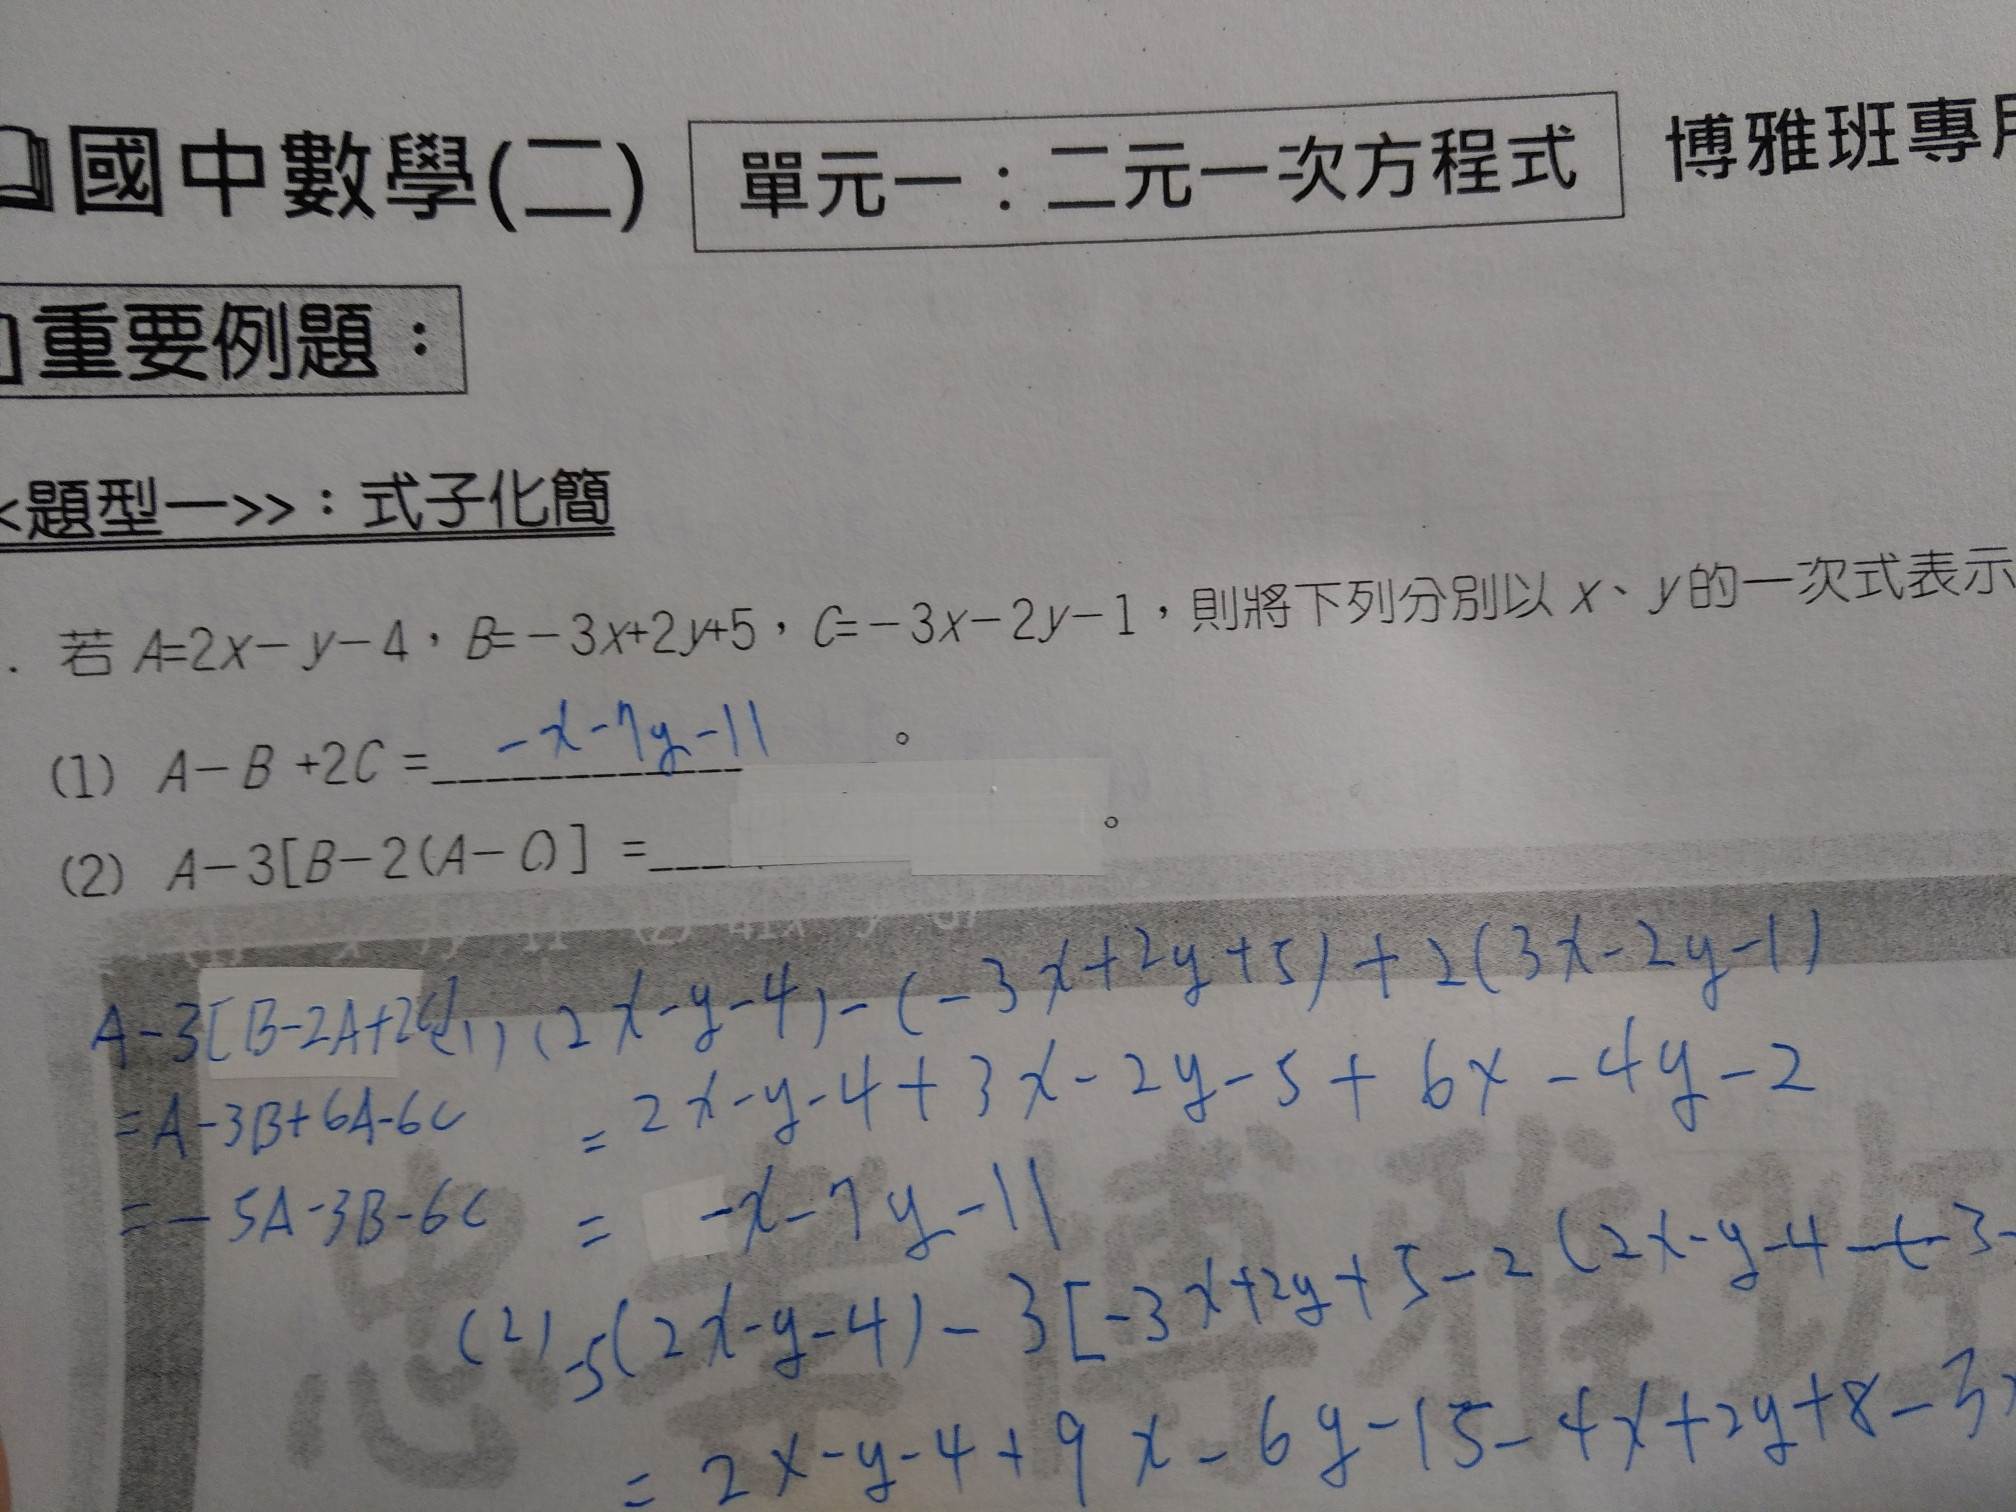 國中數學(二) 單元一：二元一次方程式 博雅班專用
重要例題：
<題型一>>：式子化簡
. 若 A=2x－y－4，B=－3x+2y+5，C=－3x－2y－1，則將下列分別以 x、y的一次式表示
(1) A－B +2C =-x-7y-11。
(2) A－3[B－2(A－C)] =____。
A-3[B-2A+2C]
=A-3B+6A-6C
=-5A-3B-6C
(1) (2x-y-4)-(-3x+2y+5)+2(3x-2y-1)
=2x-y-4+3x-2y-5+6x-4y-2
= -x-7y-11
(2) -5(2x-y-4)-3[-3x+2y+5-2(2x-y-4-(-3
=2x-y-4+9x-6y-15-4x+2y+8-3x